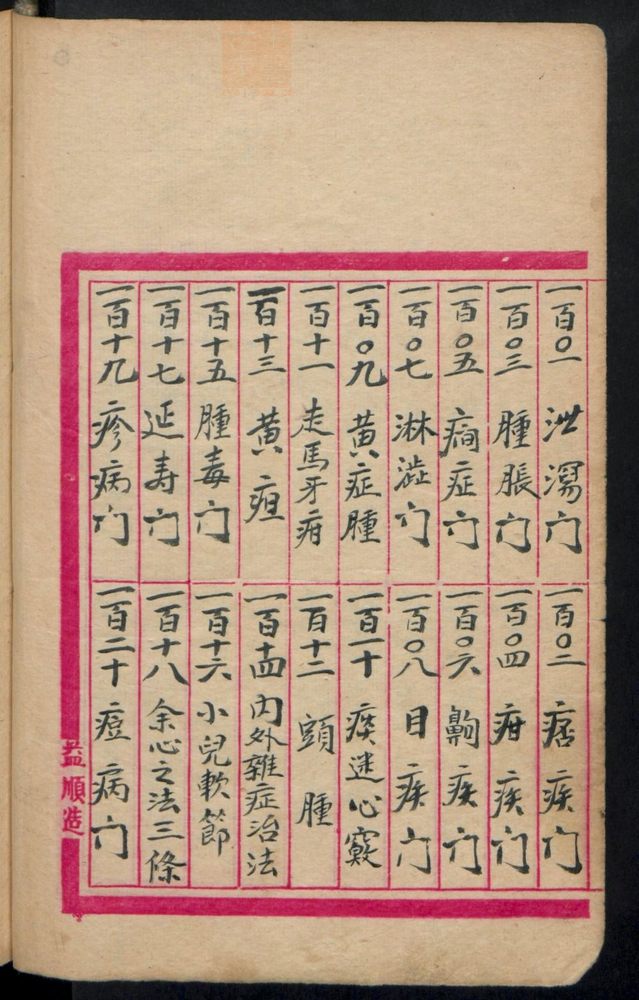 一百〇一 泄瀉门
一百〇二 痞疾门
一百〇三 腫脹门
一百〇四 疳疾门
一百〇五 癇症门
一百〇六 齁疾门
一百〇七 淋澁门
一百〇八 目疾门
一百〇九 黄症腫
一百一十 痰迷心竅
一百十一 走馬牙疳
一百十二 頭腫
一百十三 黄疸
一百十四 内外雜症治法
一百十五 腫毒门
一百十六 小兒軟節
一百十七 延寿门
一百十八 余心之法三條
一百十九 疹病门
一百二十 痘病门
益順造